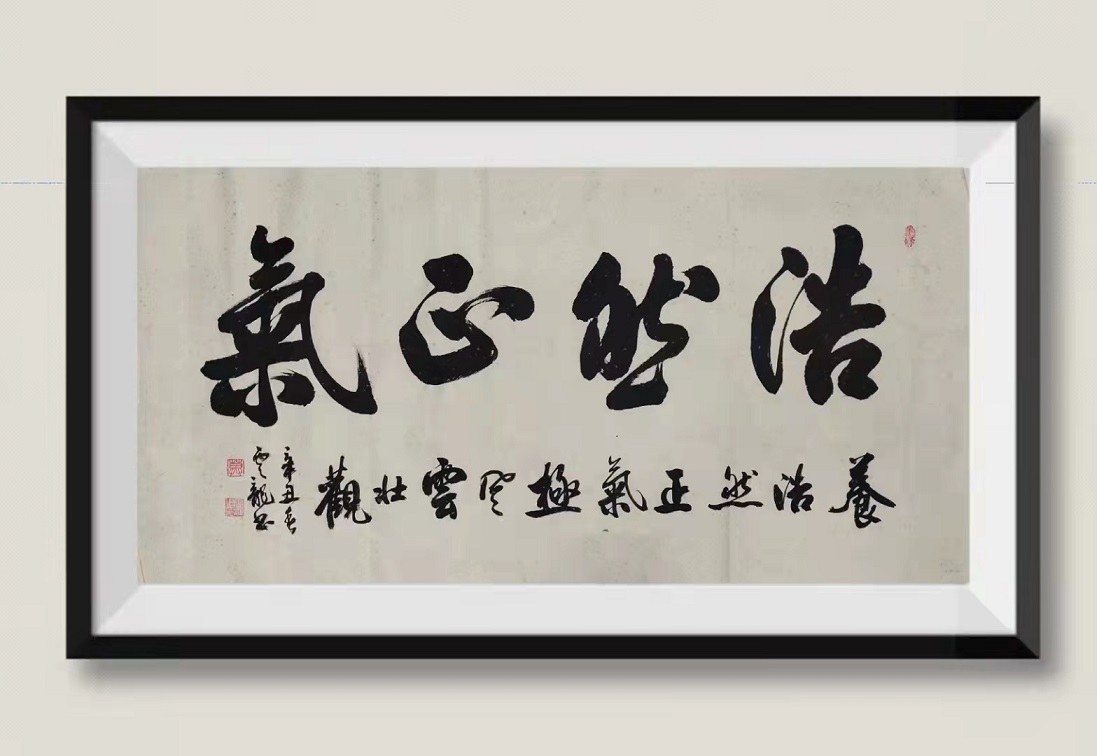 浩然正氣
養浩然正氣極風雲壯觀
辛丑春
雲龍書